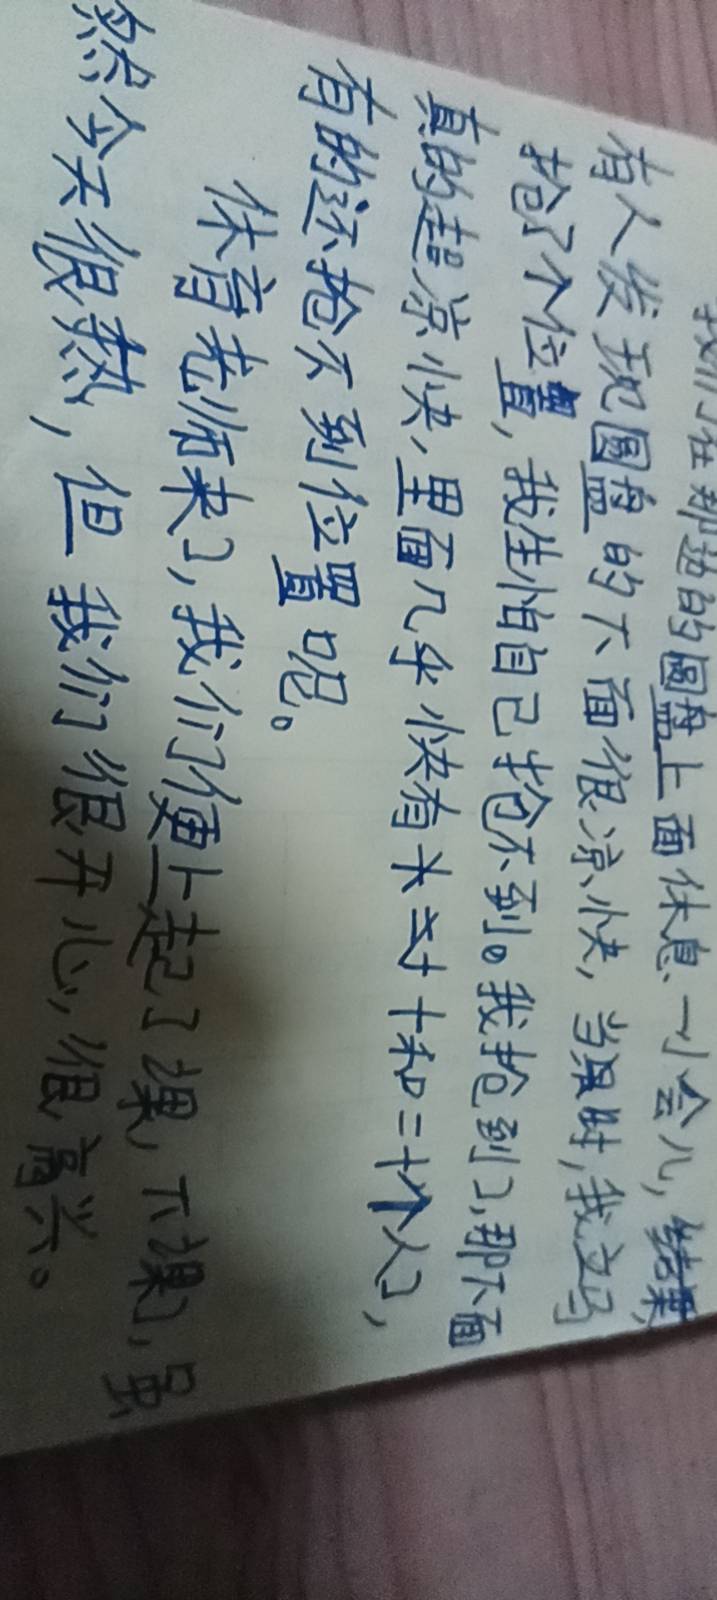 我们在那边的圆盘上面休息一小会儿,结果
有人发现圆盘的下面很凉快,当即时,我立马
抢了个位置,我生怕自己抢不到。我抢到了,那下面
真的超凉快,里面几乎快有 对十和二十个人了,
有的还抢不到位置呢。
体育老师来了,我们便上起了课,下课了,虽
然今天很热,但我们很开心,很高兴。